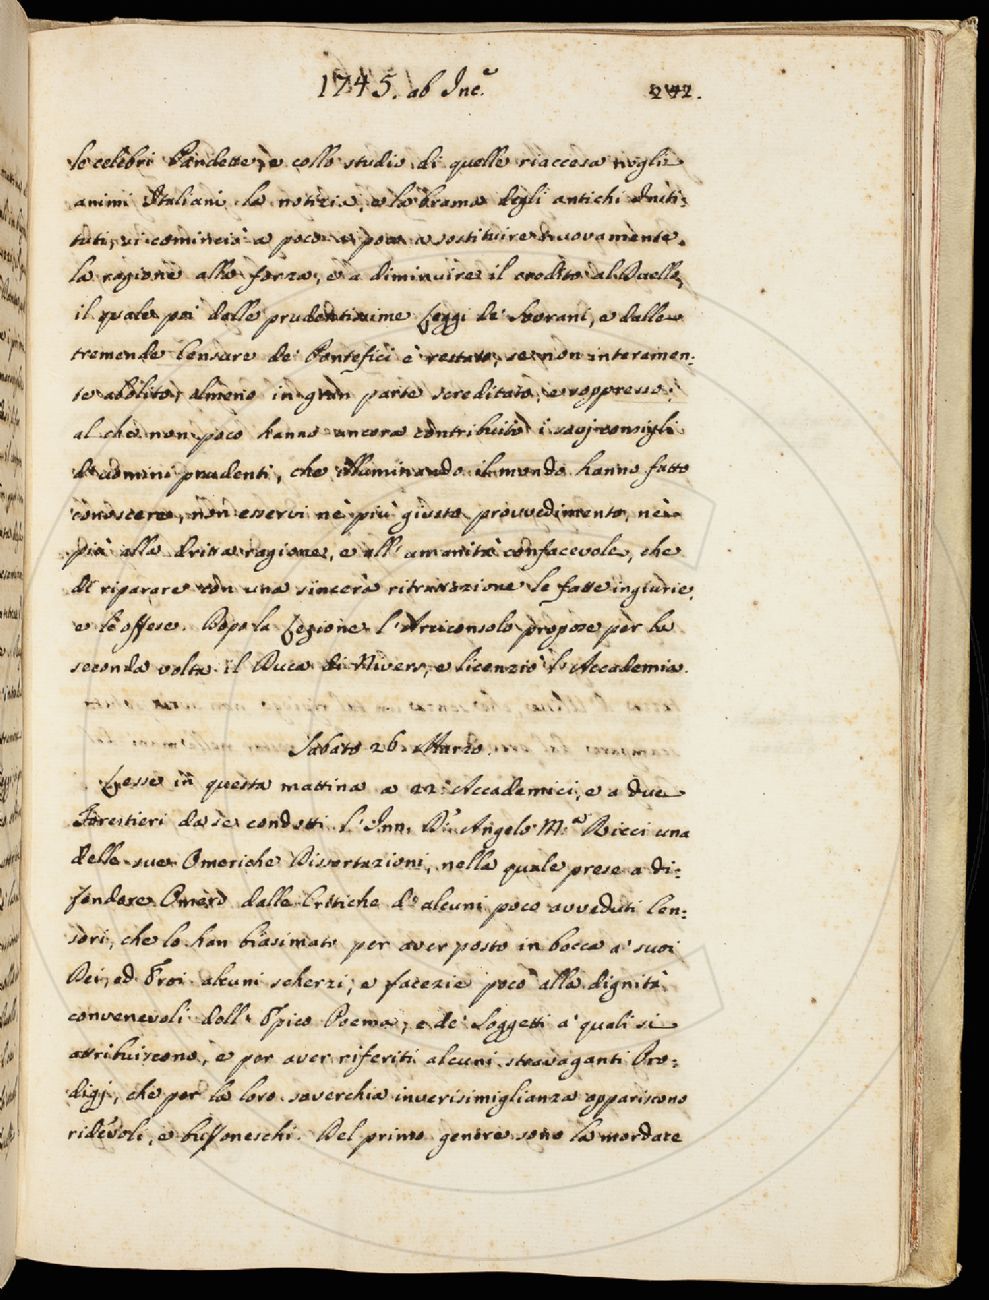 1745. ab Inc.e 242.
le celebri Pandette, e collo studio di quelle riaccesa negli
animi Italiani la notizia, e la brama degli antichi Insti:
tuti, si cominciò a poco a poco a sostituire nuovamente
la ragione alla forza, e a diminuire il credito al Duello,
il quale poi dalle prudentissime Leggi de' Sovrani, e dalle
tremende Censure de' Pontefici è restato, se non interamen:
te abolito, almeno in gran parte screditato, e soppresso;
al che non poco hanno ancora contribuito i saggi consigli
d'uomini prudenti, che illuminando il mondo hanno fatto
conoscere, non esservi nè più giusto provvedimento, nè
più alla dritta ragione, e all'umanità confacevole, che
di riparare con una sincera ritrattazione le fatte ingiurie,
e le offese. Dopo la Lezione l'Arciconsolo propose per la
seconda volta il Duca di Nivers, e licenziò l'Accademia.
Sabato 26. Marzo.
Lesse in questa mattina a 22. Accademici, e a due
Forestieri da se condotti l'Inn. D.r Angelo M.a Ricci una
delle sue Omeriche Dissertazioni, nella quale prese a di:
fendere Omero dalle Critiche d'alcuni poco avveduti Cen:
sori, che lo han biasimato per aver posto in bocca a' suoi
Dei, ed Eroi alcuni scherzi, e facezie poco alla dignità
convenevoli dell'Epico Poema, e de' Soggetti a' quali si
attribuiscono, e per aver riferiti alcuni stravaganti Pro:
digj, che per la loro soverchia inverisimiglianza appariscono
ridevoli, e buffoneschi. Del primo genere sono la mordace